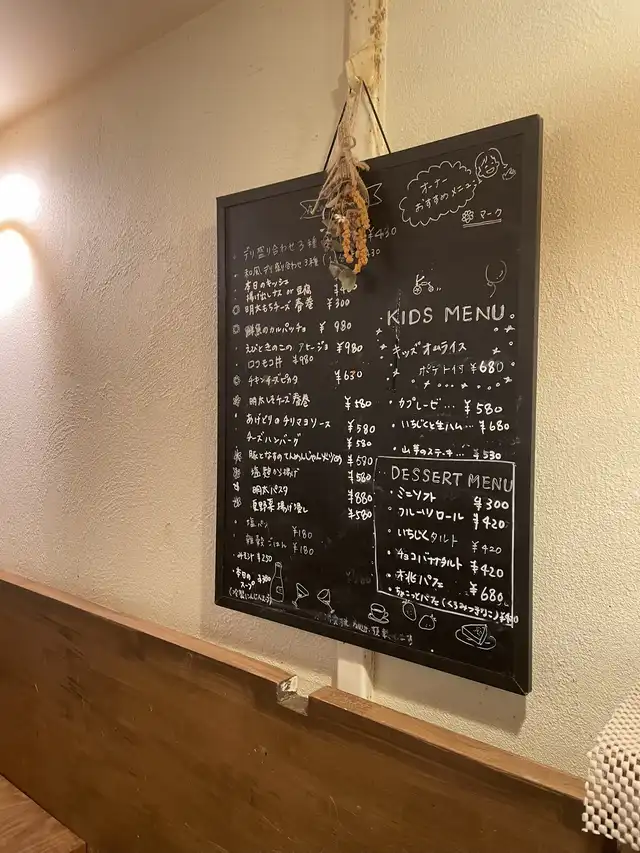 オーナー
おすすめメニュー
マーク
・デリ盛り合わせ3種 ¥430
・和風デリ盛り合わせ3種
本日のキッシュ
揚げ出しナス or 豆腐
明太もちチーズ春巻 ¥300
鮮魚のカルパッチョ ¥980
えびときのこのアヒージョ ¥980
ロコモコ丼 ¥980
チキンチーズピカタ ¥630
明太しそチーズ春巻 ¥580
あげどりのチリマヨソース ¥580
チーズハンバーグ ¥580
豚となすのてんめんじゃん炒め ¥680
塩麹から揚げ ¥580
明太パスタ ¥880
夏野菜揚げ浸し ¥580
・塩パン ¥180
・雑穀ごはん ¥180
・みそ汁 ¥250
・本日のスープ
KIDS MENU
キッズオムライス
ポテト付 ¥680
・カプレーゼ… ¥580
・いちじくと生ハム… ¥680
・山芋のステーキ… ¥530
DESSERT MENU
・ミニソフト ¥300
・フルーツロール ¥420
・いちじくタルト ¥420
・チョコバナナタルト ¥420
・水桃パフェ ¥680
・ちょこっとパフェ(くろみつきなこ)